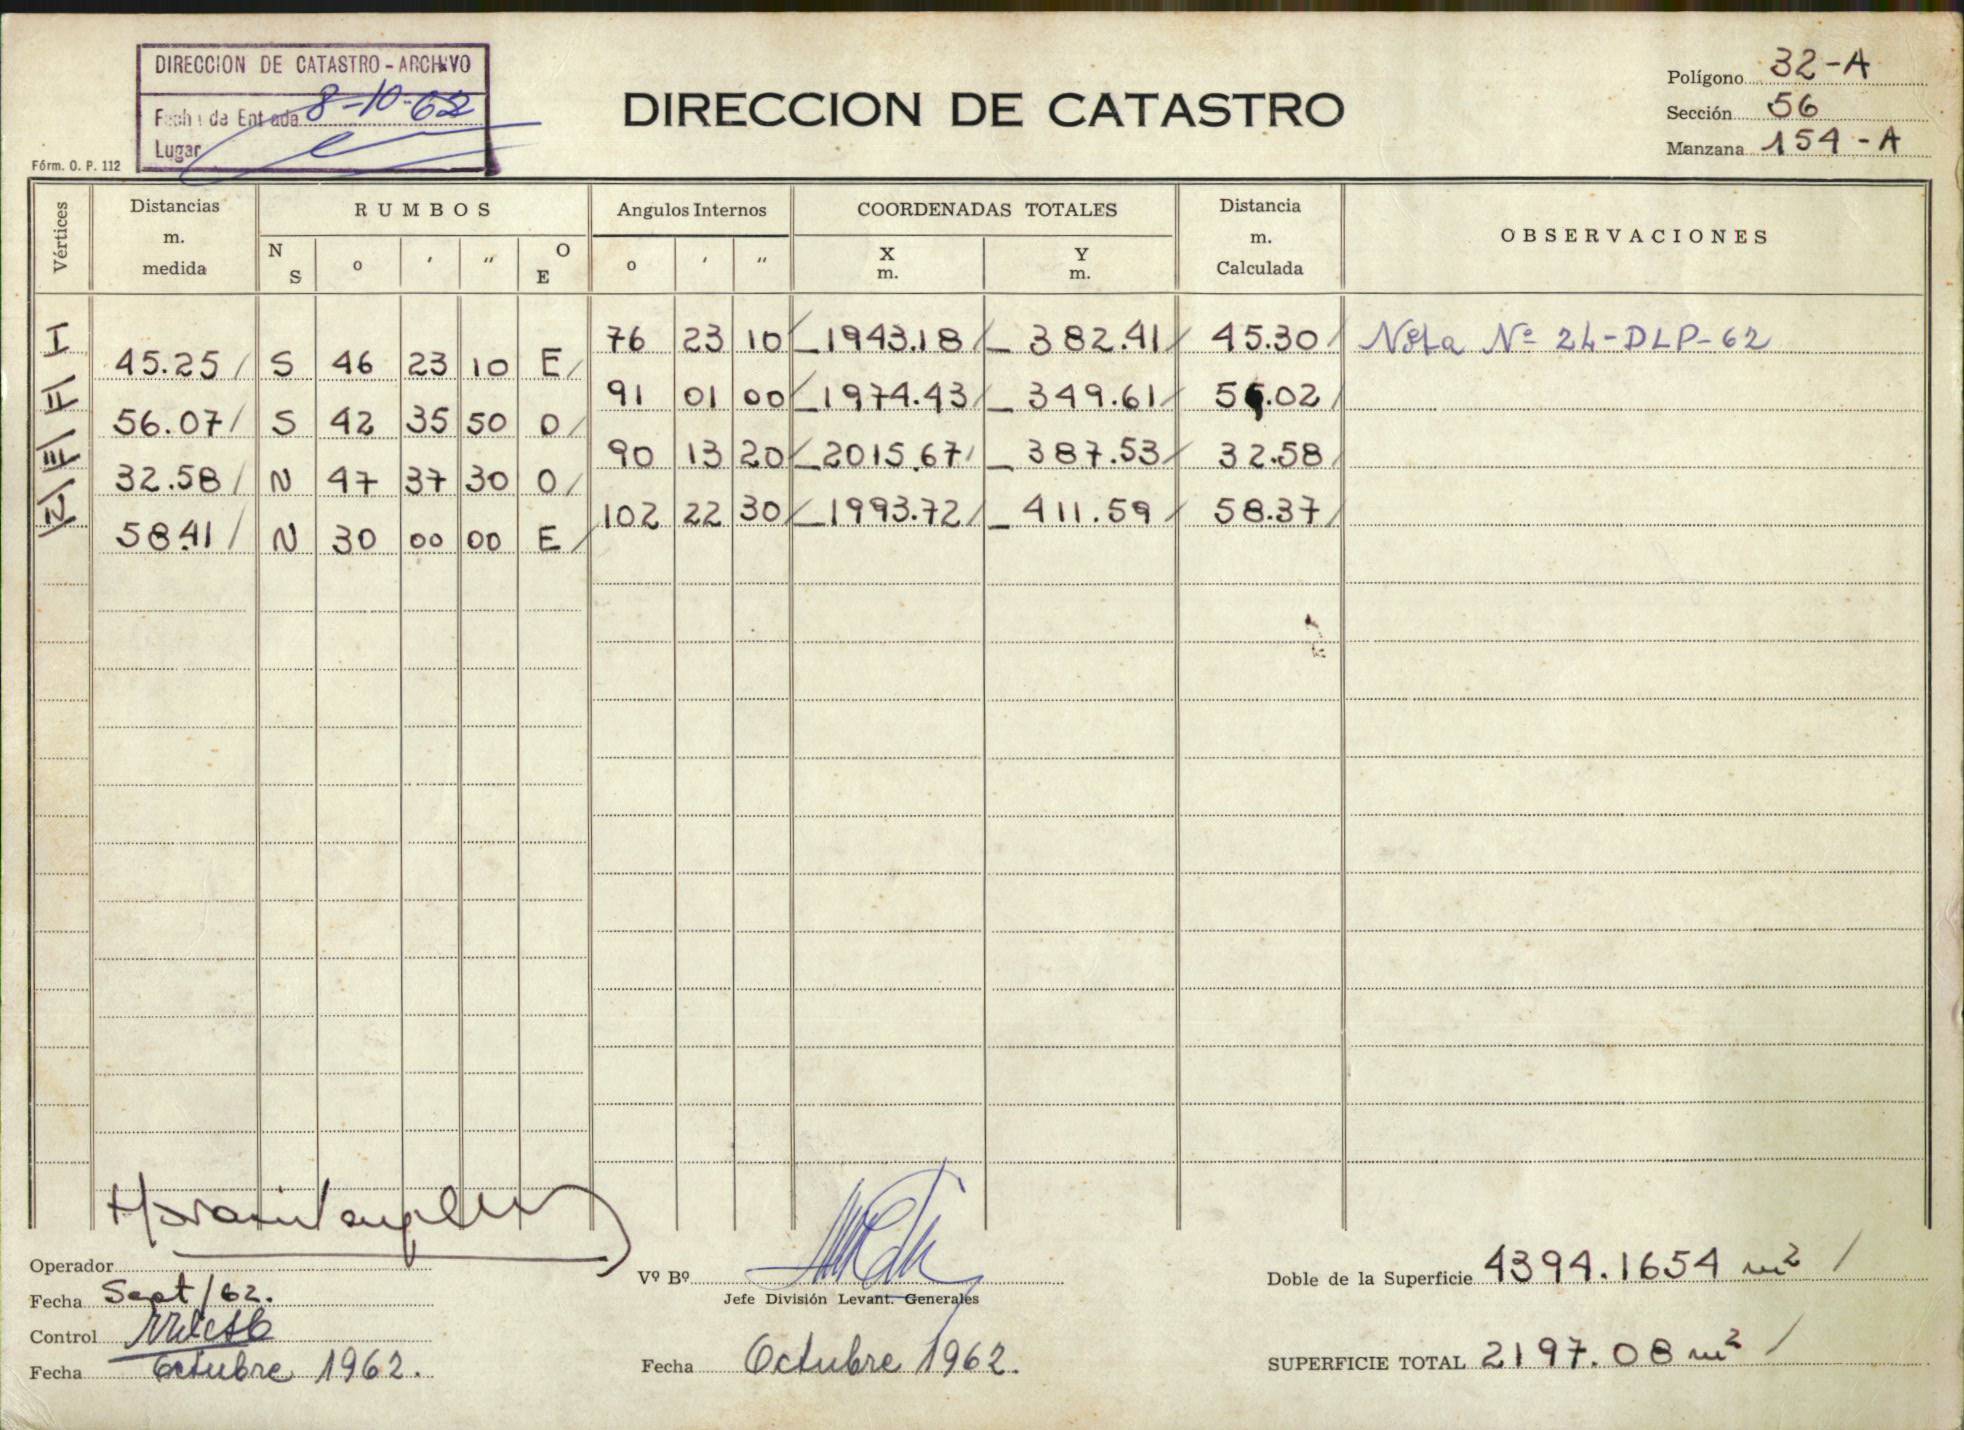 DIRECCION DE CATASTRO - ARCHIVO
Fecha de Entrada 8-10-62
Lugar
Fórm. O. P. 112
DIRECCION DE CATASTRO
Polígono 32-A
Sección 56
Manzana 154-A
Vértices
Distancias m. medida
RUMBOS
N S o ' " O E
Angulos Internos
o ' "
COORDENADAS TOTALES
X m.
Y m.
Distancia m. Calculada
OBSERVACIONES
I 76 23 10 -1943.18 - 382.41 45.30 Nota Nº 24-DLP-62
45.25 S 46 23 10 E
II 91 01 00 -1974.43 - 349.61 56.02
56.07 S 42 35 50 O
III 90 13 20 -2015.67 - 387.53 32.58
32.58 N 47 37 30 O
IV 102 22 30 -1993.72 - 411.59 58.37
58.41 N 30 00 00 E
Operador
Fecha Sept/62.
Control
Fecha Octubre 1962.
Vº Bº
Jefe División Levant. Generales
Fecha Octubre 1962.
Doble de la Superficie 4394.1654 m²
SUPERFICIE TOTAL 2197.08 m²